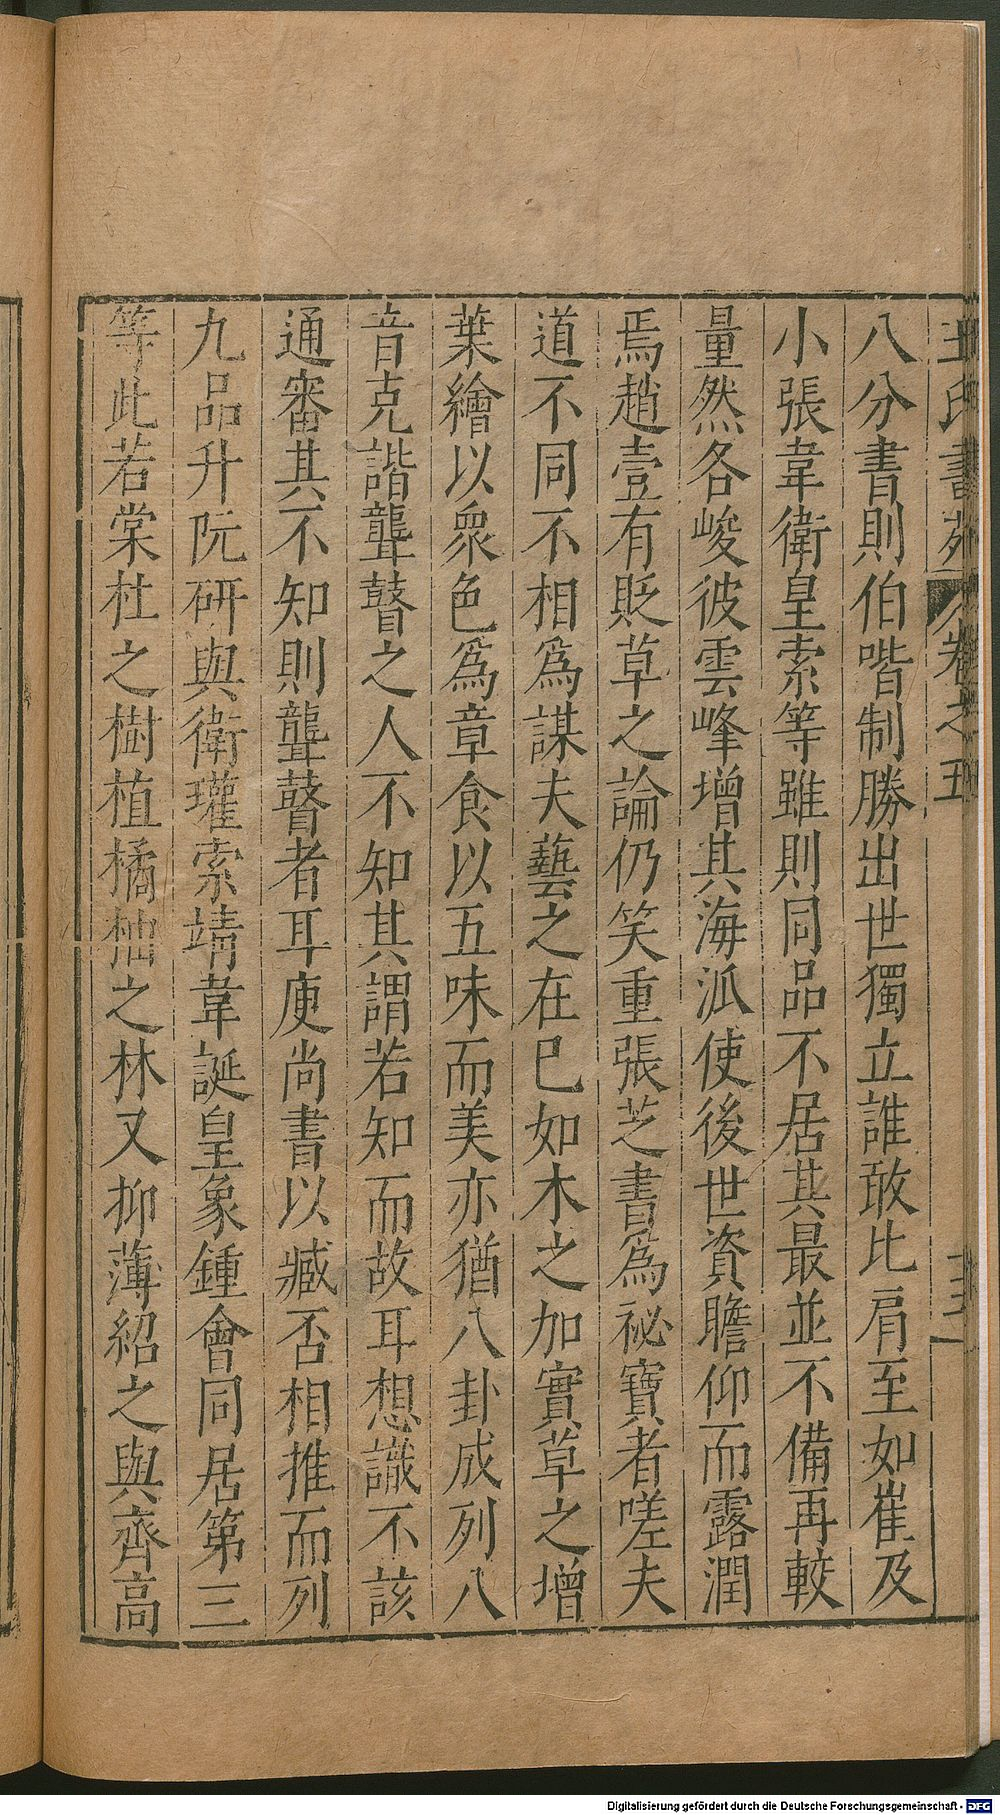 王氏書苑 卷之五
八分書則伯喈制勝出世獨立誰敢比肩至如崔及
小張韋衛皇索等雖則同品不居其最並不備再較
量然各峻彼雲峰增其海泒使後世資瞻仰而露潤
焉趙壹有貶草之論仍笑重張芝書為祕寶者嗟夫
道不同不相為謀夫藝之在已如木之加實草之增
葉繪以衆色為章食以五味而美亦猶八卦成列八
音克諧聾瞽之人不知其謂若知而故耳想識不該
通審其不知則聾瞽者耳庾尚書以臧否相推而列
九品升阮研與衛瓘索靖韋誕皇象鍾會同居第三
等此若棠杜之樹植橘柚之林又抑薄紹之與齊高
Digitalisierung gefördert durch die Deutsche Forschungsgemeinschaft - DFG